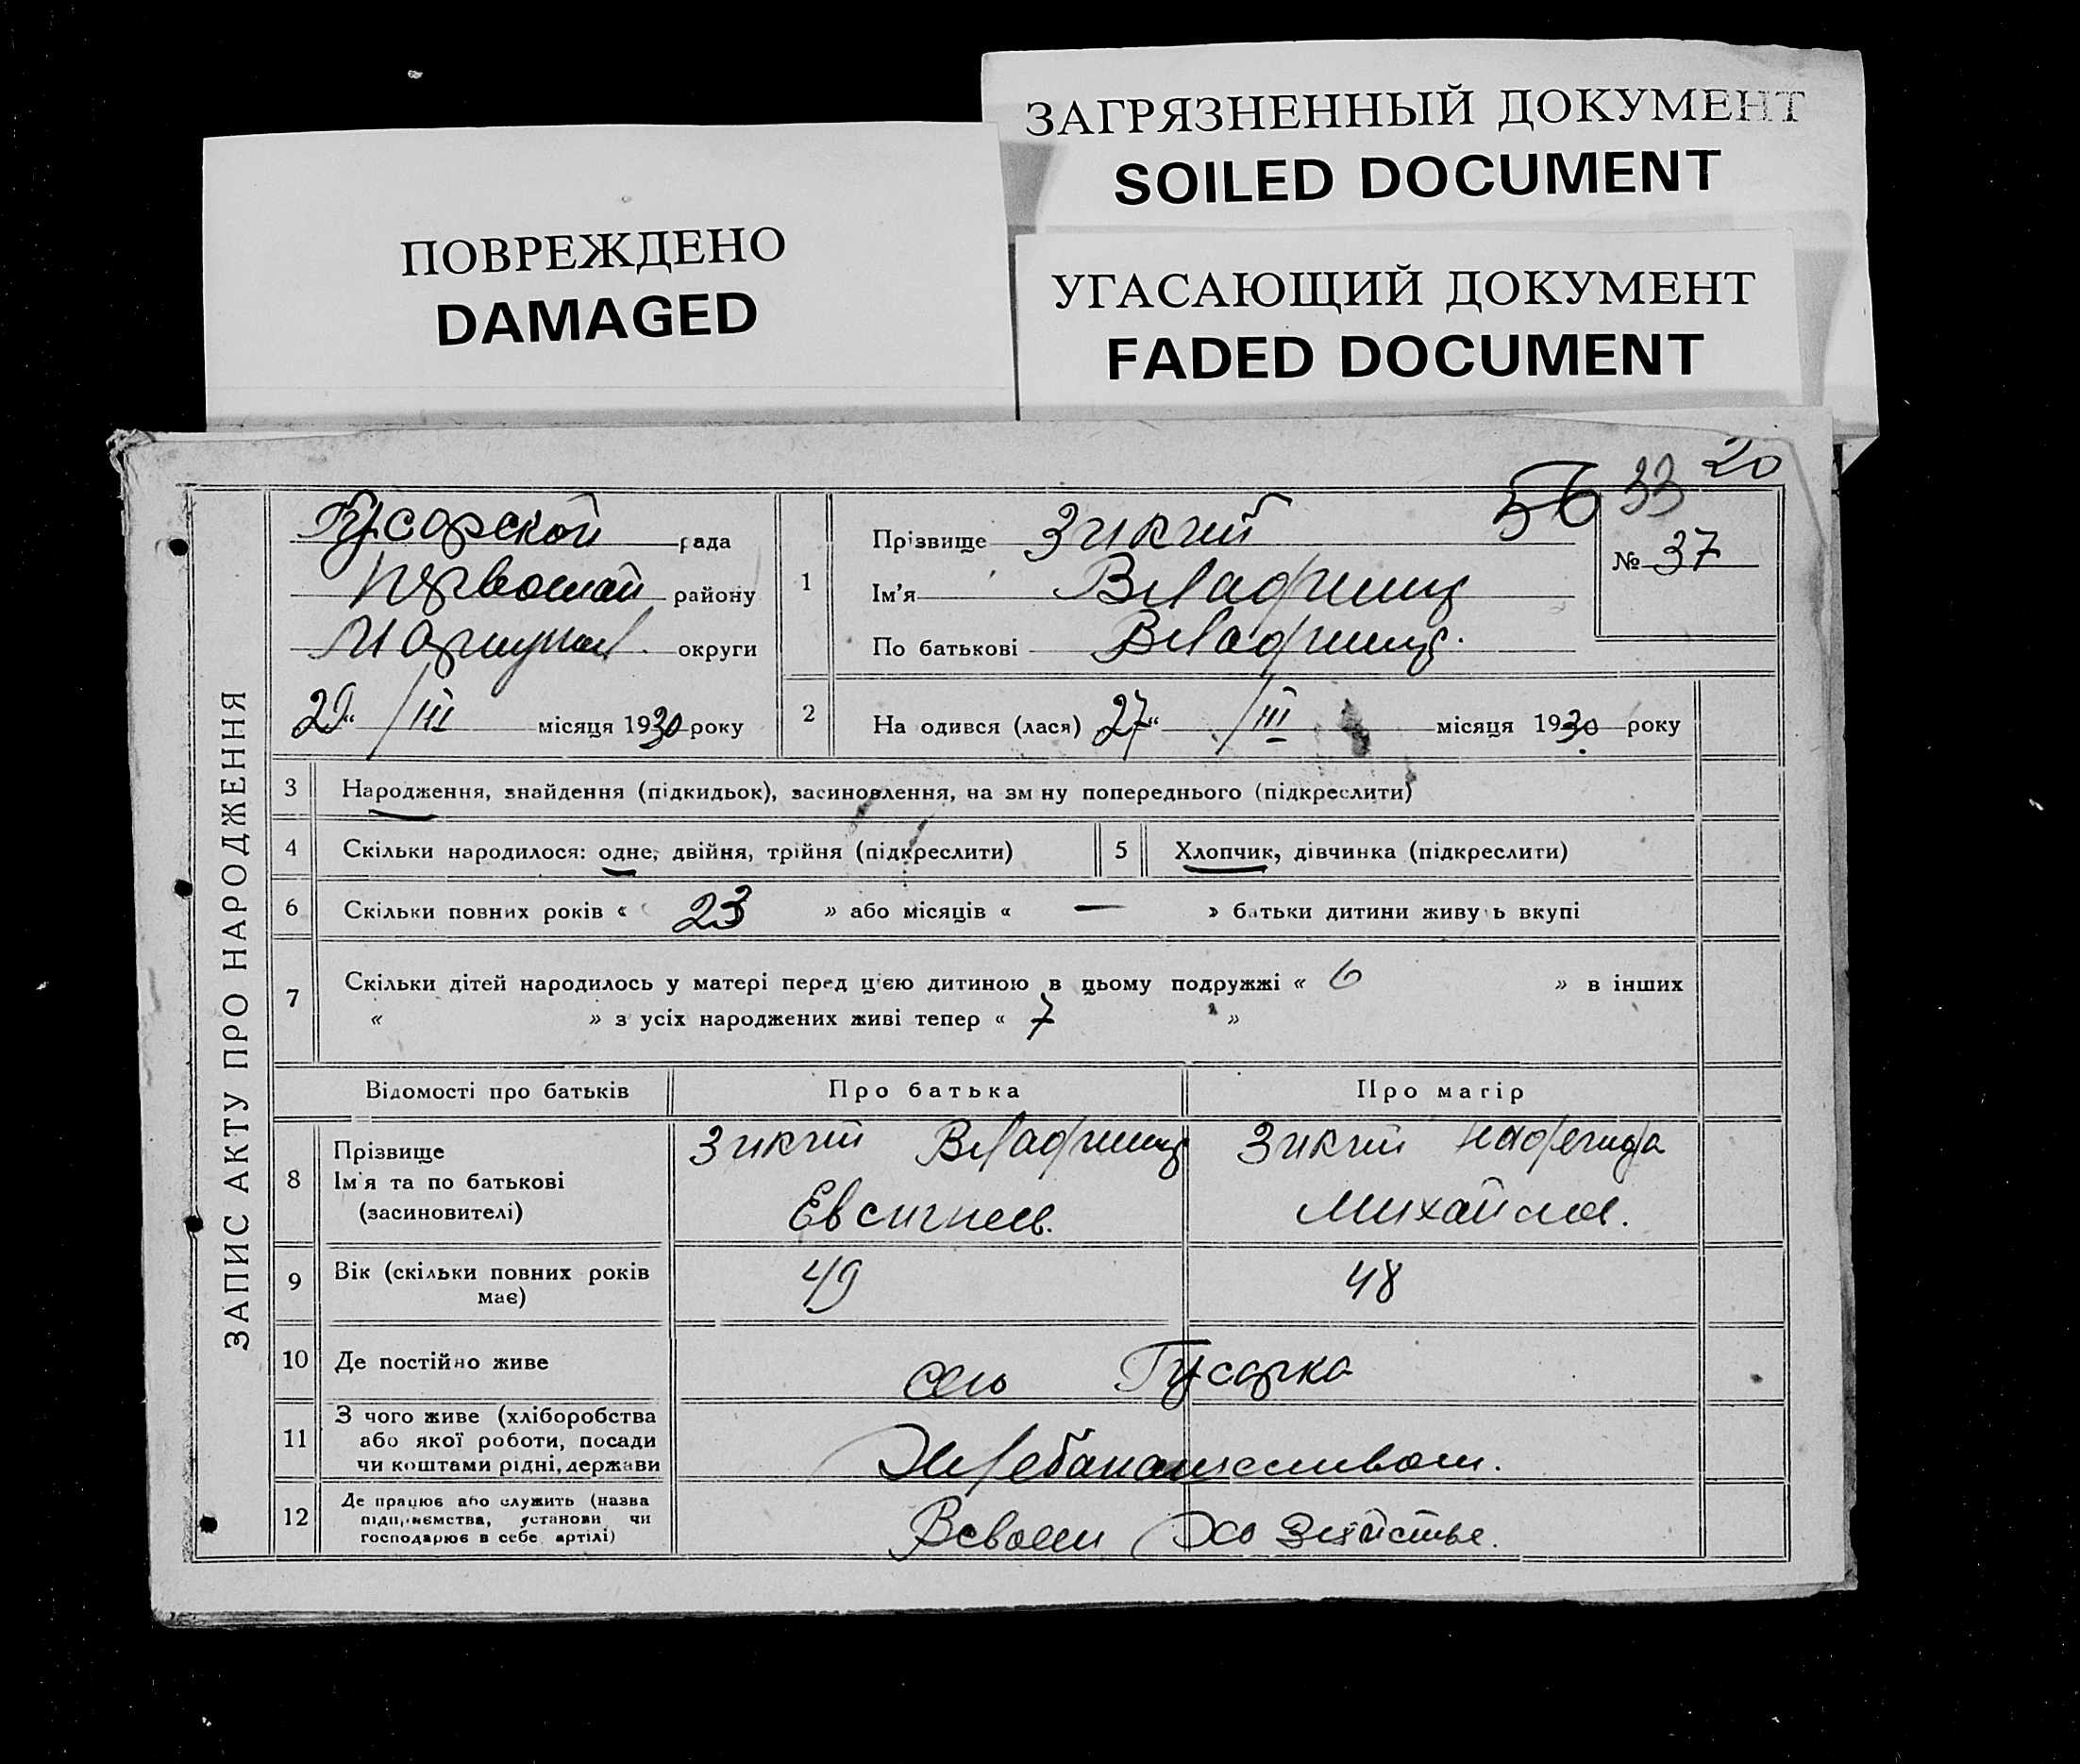 ЗАГРЯЗНЕННЫЙ ДОКУМЕНТ
SOILED DOCUMENT
ПОВРЕЖДЕНО
DAMAGED
УГАСАЮЩИЙ ДОКУМЕНТ
FADED DOCUMENT
33 20
56
ЗАПИС АКТУ ПРО НАРОДЖЕННЯ
Гусарской рада
Первомай району
Мариупол. округи
29 “ /III місяця 1930 року
1
Прізвище Зикий
Ім'я Владимир
По батькові Владимир.
№ 37
2
На одився (лася) 27 “ /III місяця 1930 року
3 Народження, знайдення (підкидьок), засиновлення, на зм ну попереднього (підкреслити)
4 Скільки народилося: одне, двійня, трійня (підкреслити) 5 Хлопчик, дівчинка (підкреслити)
6 Скільки повних років « 23 » або місяців « — » батьки дитини живу ь вкупі
7 Скільки дітей народилось у матері перед ц'єю дитиною в цьому подружжі « 6 » в інших
« » з усіх народжених живі тепер « 7 »
Відомості про батьків Про батька Про матір
8 Прізвище
Ім'я та по батькові
(засиновителі)
Зикий Владимир
Евсигнеев.
Зикий
Михайлов.
9 Вік (скільки повних років
має)
49 48
10 Де постійно живе село Гусарка
11 З чого живе (хліборобства
або якої роботи, посади
чи коштами рідні, держави
Хлебапашеством.
12 Де працює або служить (назва
підприємства, установи чи
господарює в себе артілі)
Всвоем Хозяйстве.